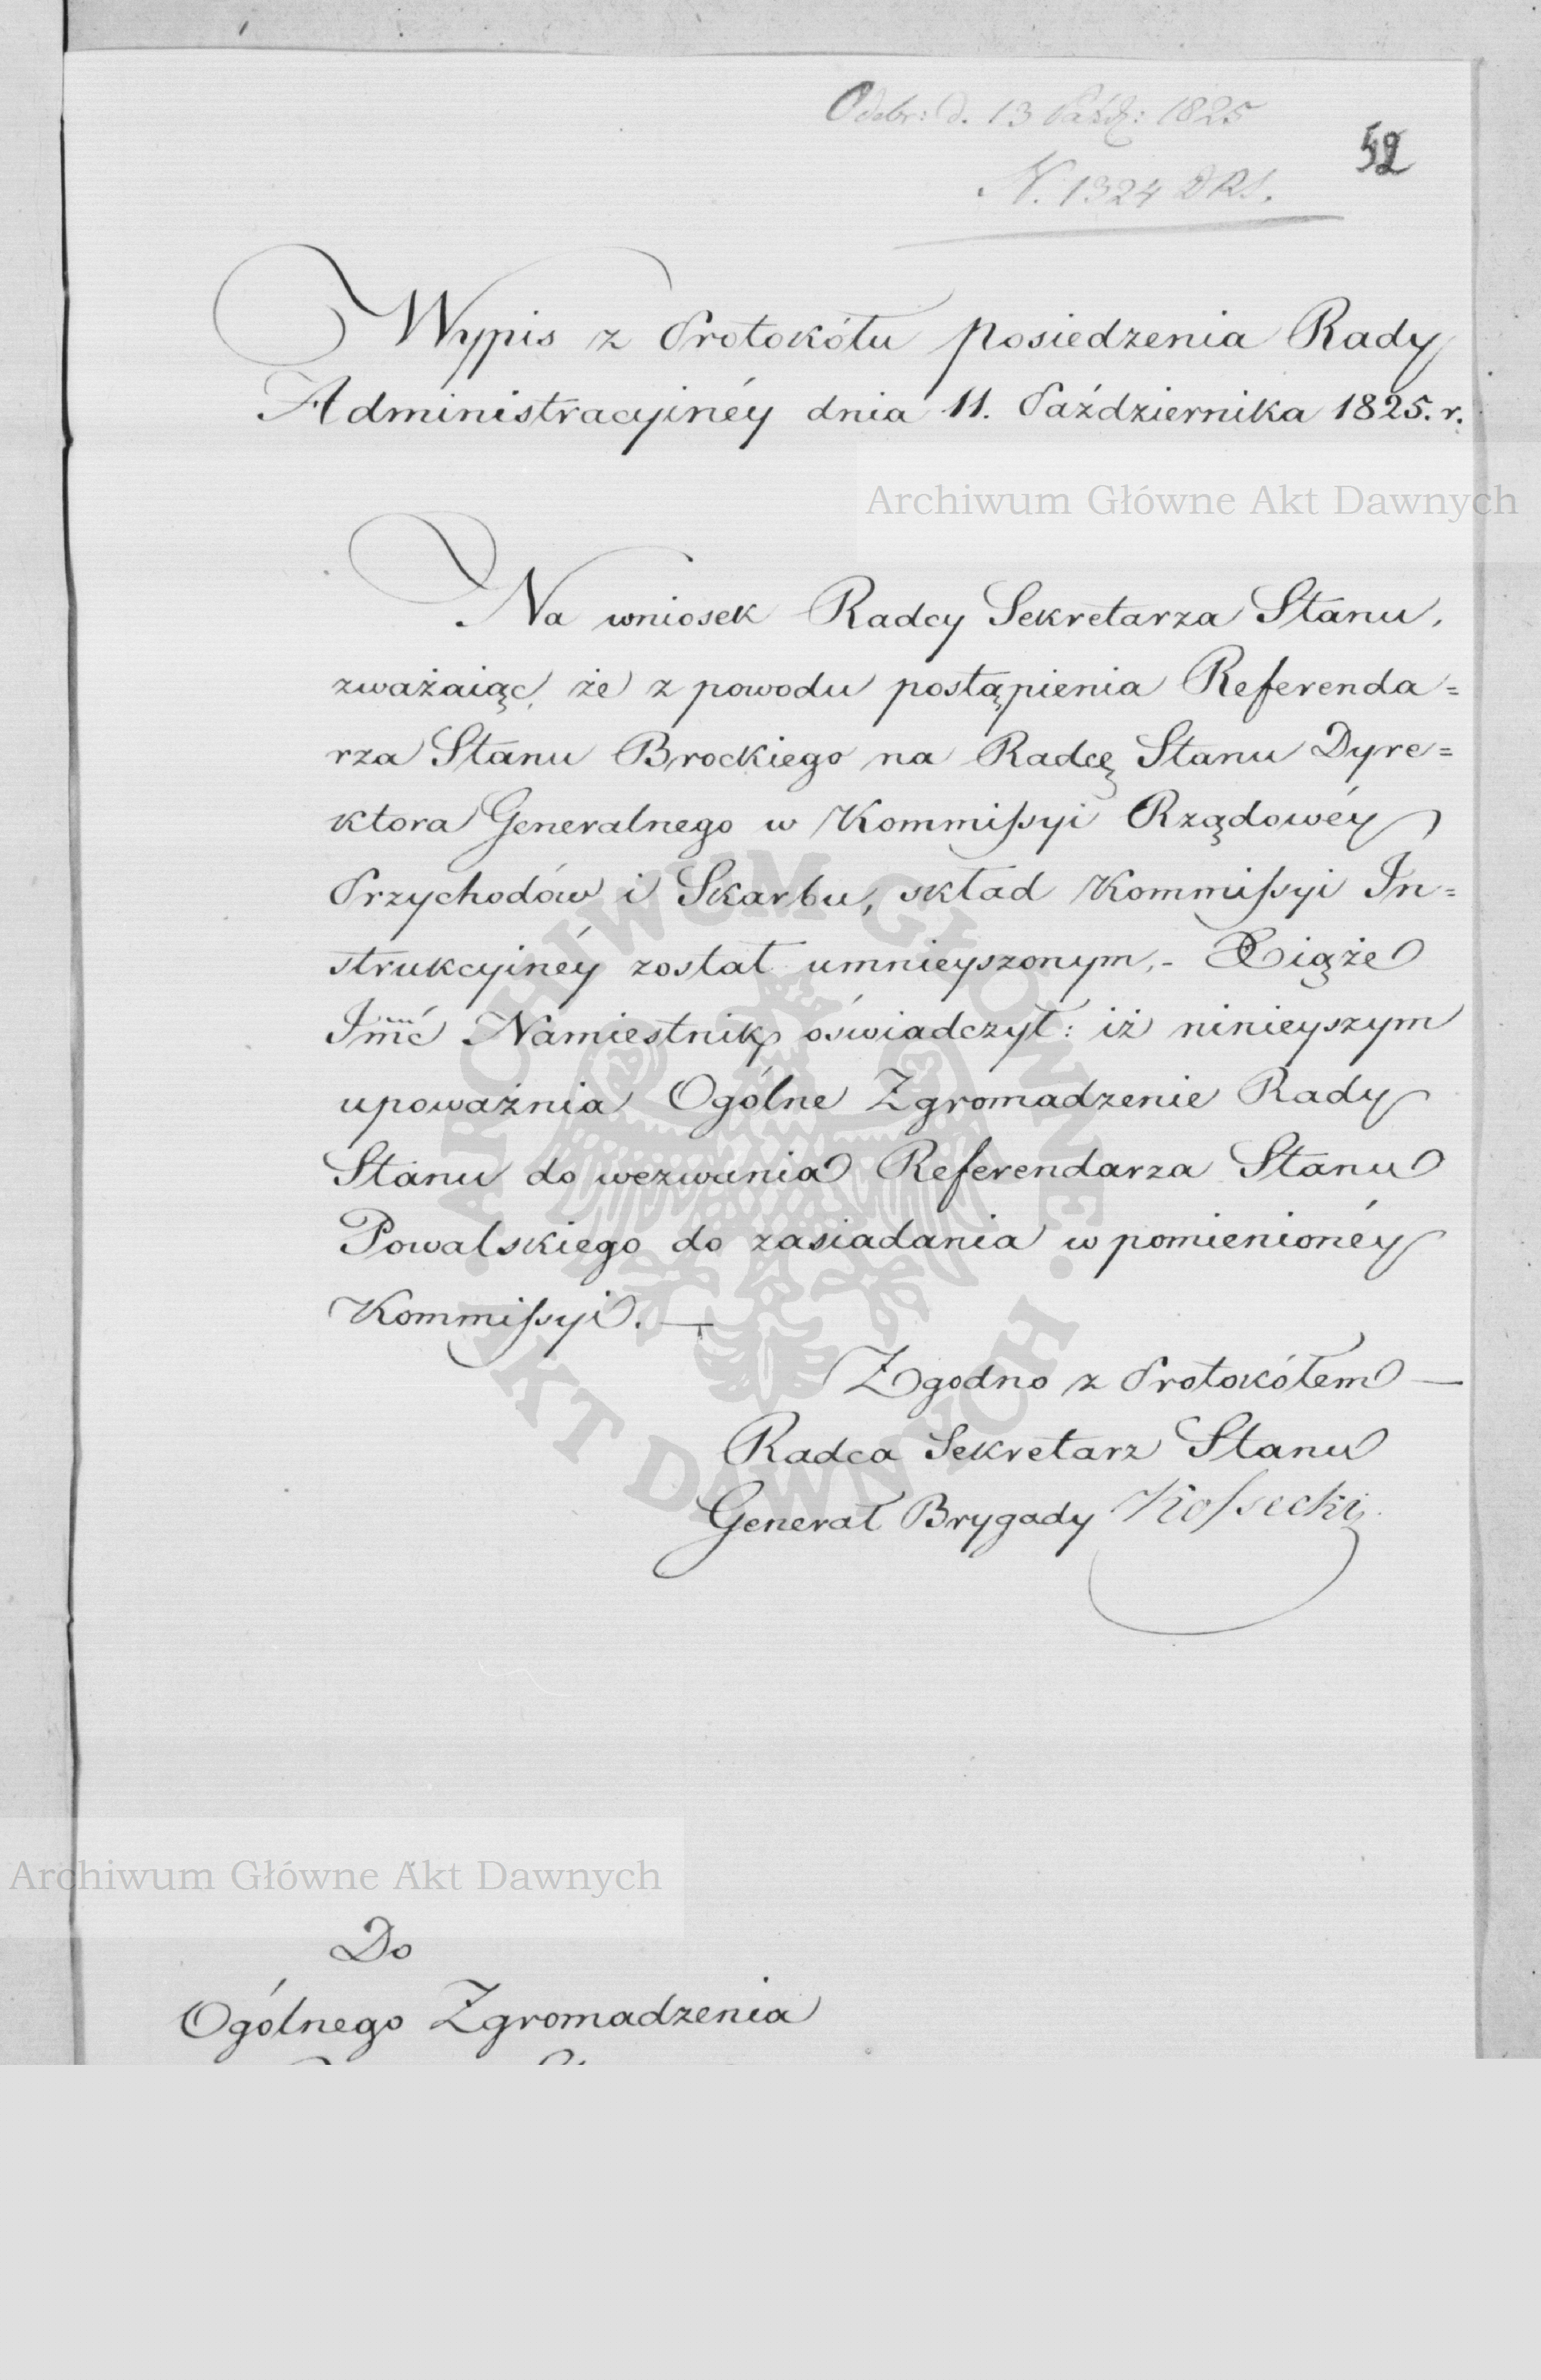 Odebr: d. 13 Paźdz: 1825
52
N. 1324 DRS.
Wypis z Protokółu posiedzenia Rady
Administracyinéy dnia 11. Października 1825. r.
Archiwum Główne Akt Dawnych
Na wniosek Radcy Sekretarza Stanu,
zważaiąc, że z powodu postąpienia Referenda=
rza Stanu Brockiego na Radcę Stanu Dyre=
ktora Generalnego w Kommiſsyi Rządowéy
Przychodów i Skarbu, skład Kommiſsyi In=
strukcyinéy został umnieyszonym, - Xiąże
Jmć Namiestnik oświadczył: iż ninieyszym
upoważnia Ogólne Zgromadzenie Rady
Stanu do wezwania Referendarza Stanu
Powalskiego do zasiadania w pomienionéy
Kommiſsyi. —
Zgodno z Protokółem —
Radca Sekretarz Stanu
Generał Brygady Koſsecki
ARCHIWUM GŁÓWNE AKT DAWNYCH
Archiwum Główne Akt Dawnych
Do
Ogólnego Zgromadzenia